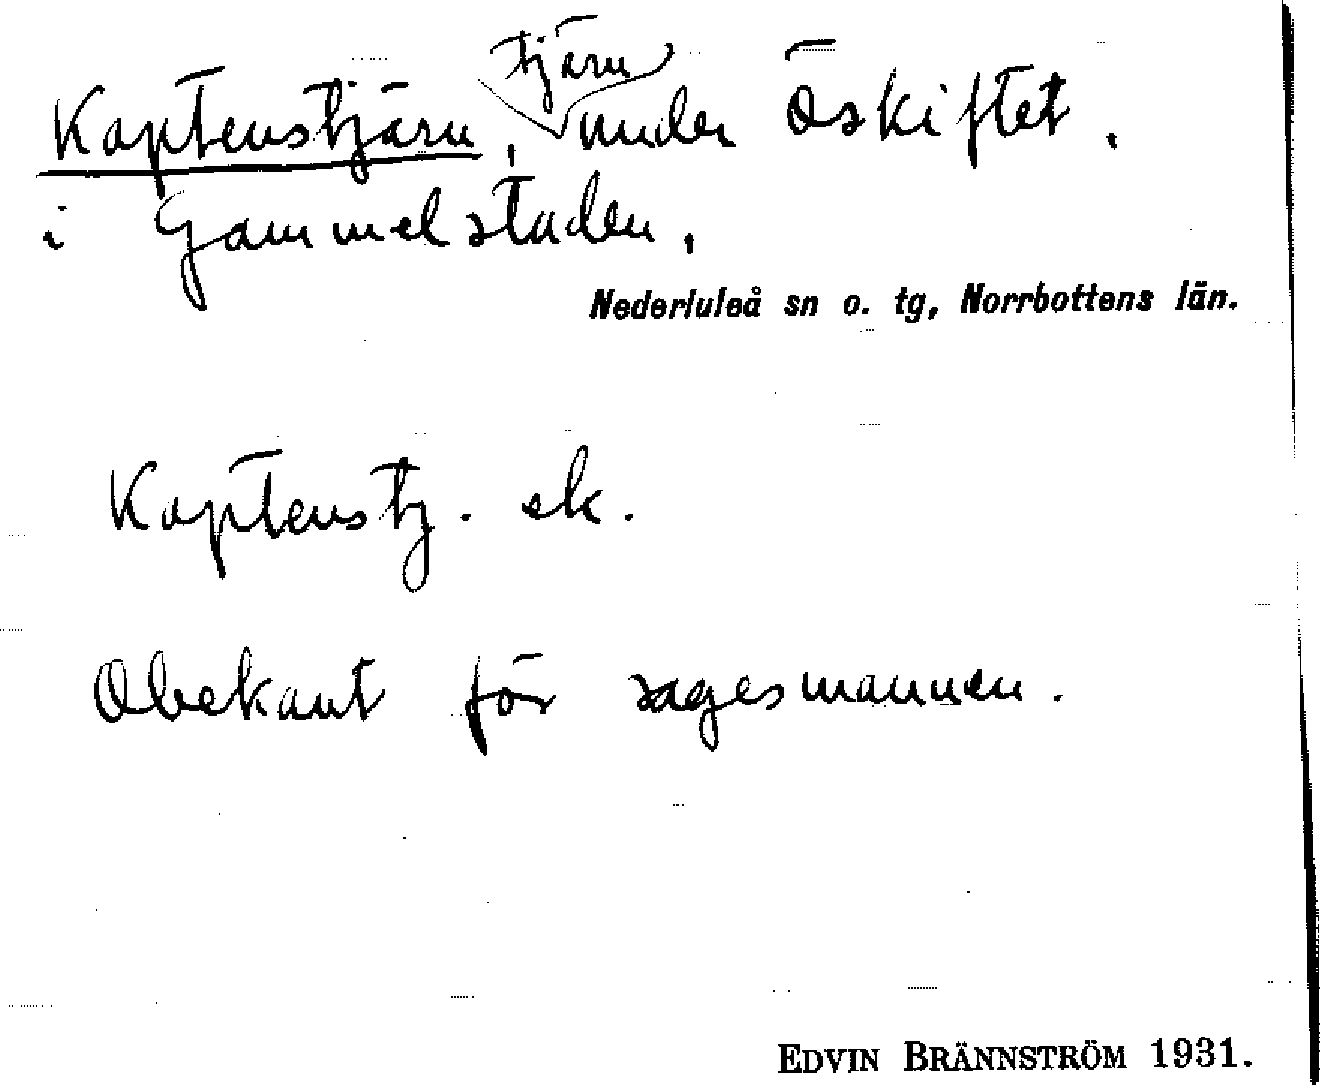 Kaptenstjärn, tjärn under Öskiftet,
i Gammelstaden.
Nederluleå sn o. tg, Norrbottens län.
Kaptenstj. sk.
Obekant för sagesmannen.
EDVIN BRÄNNSTRÖM 1931.